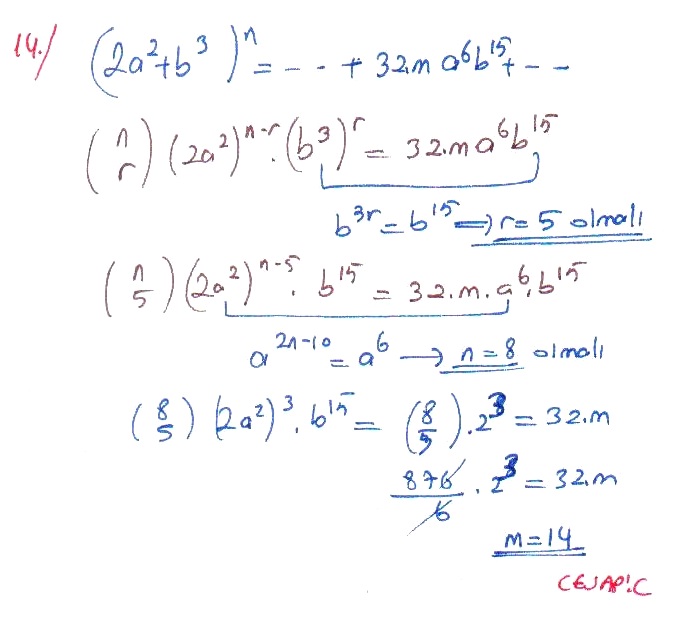 14./ (2a²+b³)ⁿ = - - - + 32.m a⁶b¹⁵ + - -
(n r) (2a²)ⁿ⁻ʳ.(b³)ʳ = 32.m a⁶b¹⁵
b³ʳ = b¹⁵ ⟹ r = 5 olmalı
(n 5) (2a²)ⁿ⁻⁵. b¹⁵ = 32.m.a⁶.b¹⁵
a²ⁿ⁻¹⁰ = a⁶ → n = 8 olmalı
(8 5) (2a²)³. b¹⁵ = (8 5).2³ = 32.m
876/6 . 2³ = 32.m
m = 14
CEVAP: C